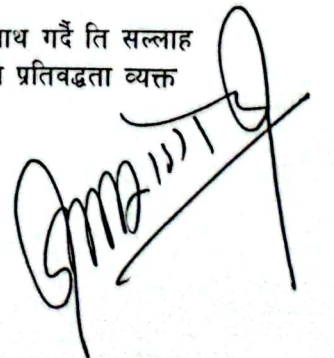 गर्दै ति सल्लाह
प्रतिवद्धता व्यक्त